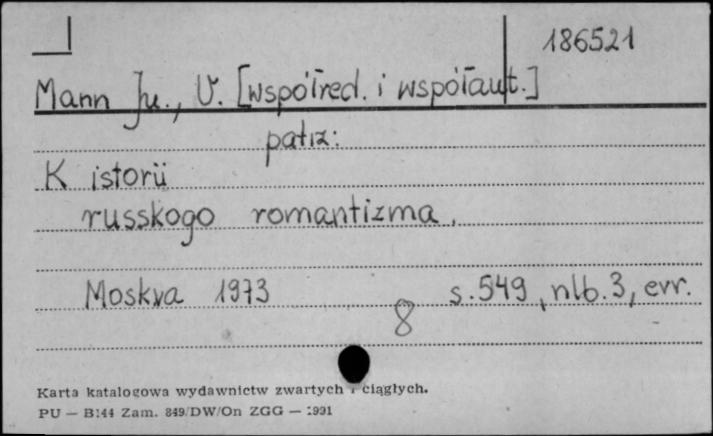 186521
Mann Ju., V. [współred. i współaut.]
patrz:
K istorii
russkogo romantizma.
Moskva 1973 s. 549, nlb. 3, err.
8
Karta katalogowa wydawnictw zwartych i ciągłych.
PU — B144 Zam. 849/DW/On ZGG — 1991